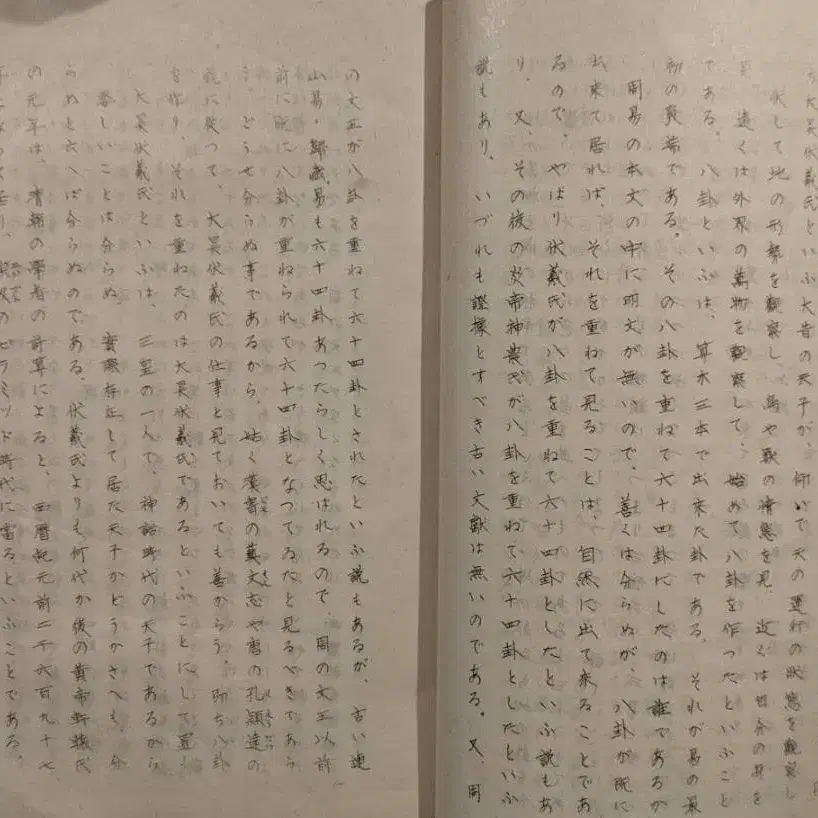 大昊伏羲氏といふ大昔の天子が、仰いで天の運行の状態を観察し
伏して地の形勢を観察し、鳥や獣の情態を見、近くは自分の身を
遠くは外界の萬物を観察して、始めて八卦を作つたといふこと
である。八卦といふは、算木三本で出来た卦である。それが易の最
初の発端である。その八卦を重ねて六十四卦にしたのは誰であるか
周易の本文の中に明文が無いので、善くは分らぬが、八卦が既に
出来て居れば、それを重ねて見ることは、自然に出て来ることであ
るので、やはり伏羲氏が八卦を重ねて六十四卦としたといふ説もあ
り、又、その後の炎帝神農氏が八卦を重ねて六十四卦としたといふ
説もあり、いづれも證據とすべき古い文献は無いのである。又、周
の文王が八卦を重ねて六十四卦とされたといふ説もあるが、古い連
山易・歸藏易も六十四卦あつたらしく思はれるので、周の文王以前
前に既に八卦が重ねられて六十四卦となつてゐたと見るべきであら
う。どうせ分らぬ事であるから、姑く漢書の藝文志や唐の孔穎達の
説に従つて、大昊伏羲氏の仕事と見ておいても善からう。即ち八卦
を作り、それを重ねたのは大昊伏羲氏であるといふことにして置く
大昊伏羲氏といふは、三皇の一人で、神話時代の天子であるから
委しいことは分らぬ。實際存在して居た天子かどうかさへも、分
らぬと云へば分らぬので、ある。伏羲氏よりも何代か後の黄帝軒轅氏
の元年は、清朝の學者の計算によると、西暦紀元前二千六百九十七
年になつて居り、埃及のピラミッド時代に當るといふことである。